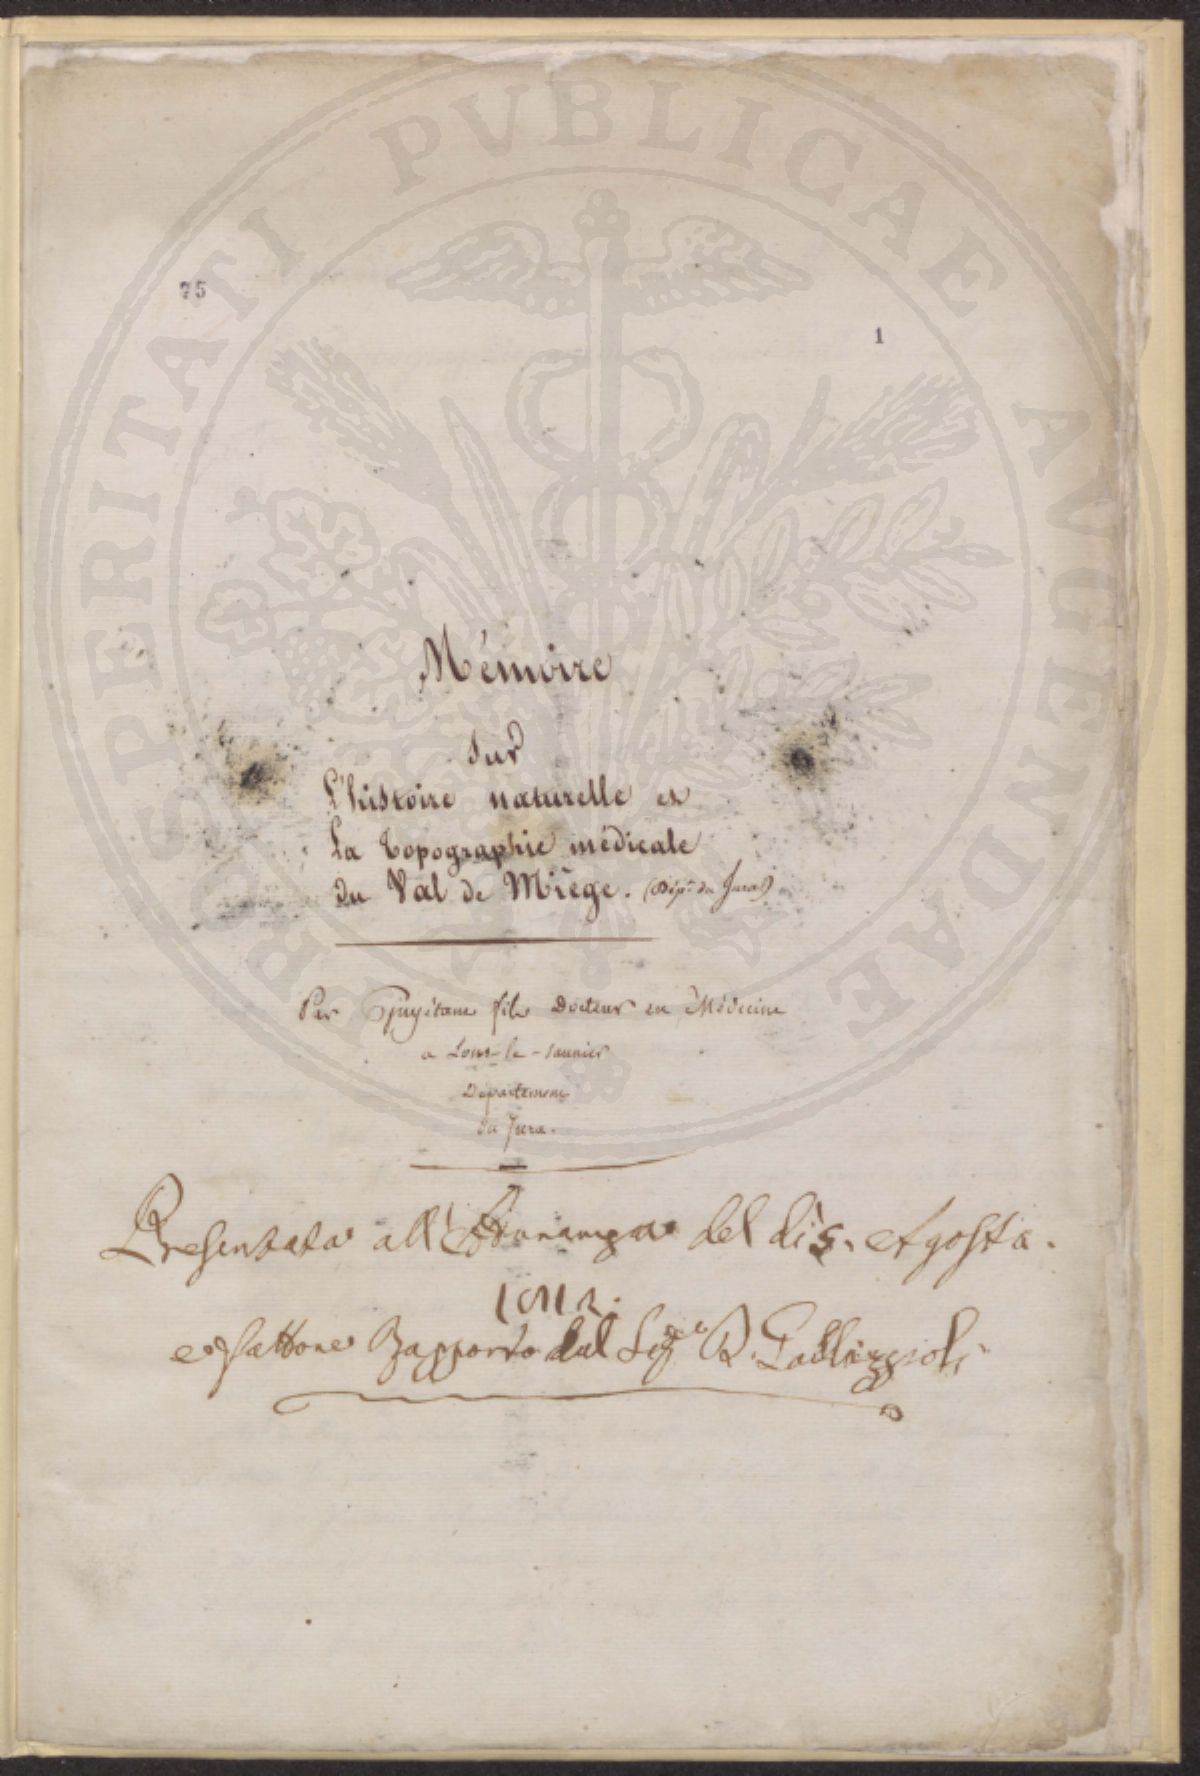 PROSPERITATI PVBLICAE AVGENDAE
75
1
Mémoire
sur
L'histoire naturelle et
La topographie médicale
du Val de Miège. (Dépt. du Jura)
Par Guyétant fils Docteur en Médecine
a Lons-le-Saunier
Département
du Jura.
Presentata all' del dì 5. Agosto.
1812.
e fattone Rapporto dal Sigre